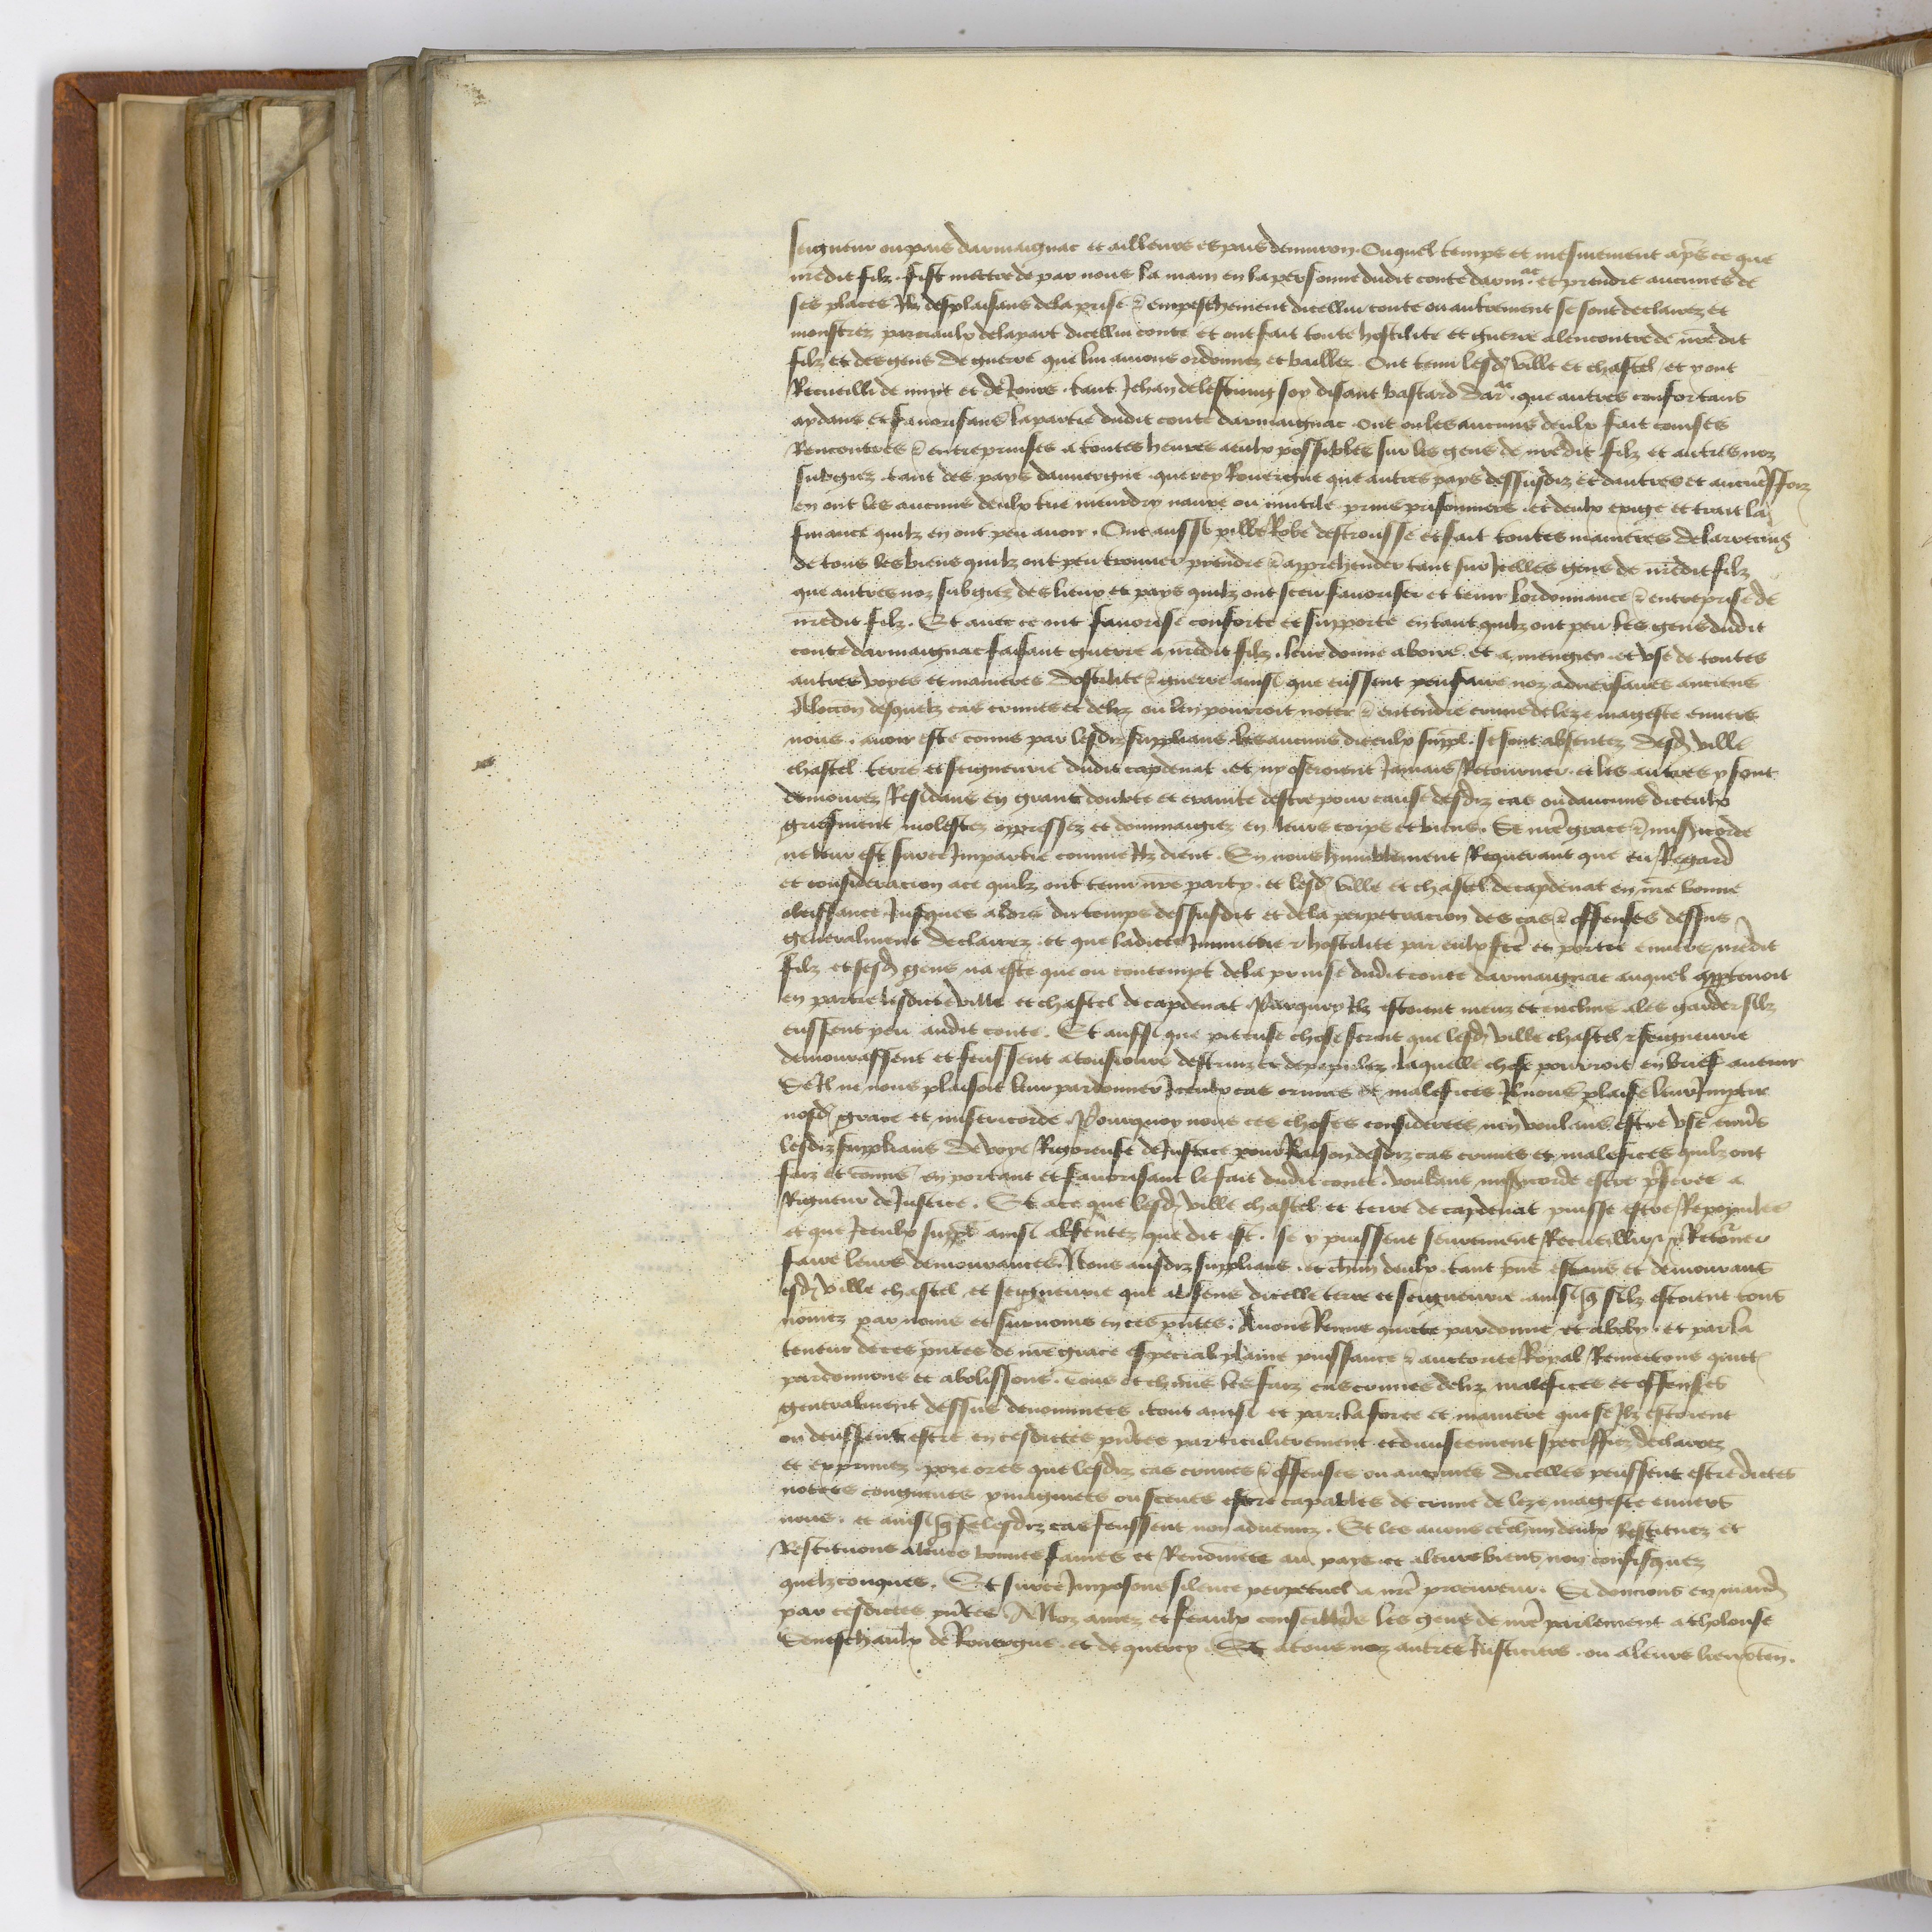 seigneur ou pais darmaignac et ailleurs es pais denuiron. Ouquel temps et mesmement ap̃s ce que
nr̃edit filz. fist mettre de par nous la main en la personne dudit conte darm̃ac. et prendre aucunes de
ses places Ilz desplaisans dela prise & empeschement dicellui conte ou autrement se sont declairez et
monstrez parciaulx dela part dicellui conte et ont fait toute hostilite et guerre alencontre de nr̃edit
filz et des gens de guerre que lui auions ordonnez et baillez. Ont tenu lesd. ville et chastel / et y ont
Recueilli de nuyt et de Jours. tant Jehan de lescung soy disant bastard darac. que autres confortans
aydans et fauorisans la partie dudit conte darmaignac. ont ou les aucuns deulx fait courses
Rencontres & entreprinses a toutes heures aeulx possibles sur les gens de nr̃edit filz et autres noz
subgiez. tant des pays dauuergne. quercy Rouergue que autres pays dessusdiz et dautres et aucunesfoiz
en ont les aucuns deulx tue meurdry naure ou mutile prins prisonniers. et deulx exige et trait la
finance quilz en ont peu auoir. Ont aussi pille Robe destrousse et fait toutes manieres de larrecins
de tous les biens quilz ont peu trouuer prendre & apprehender tant sur Icelles gens de nr̃edit filz
que autres noz subgiez des lieux et pays quilz ont sceu fauoriser et tenir lordonnance & entreprise de
nr̃edit filz. Et auec ce ont fauorise conforte et supporte en tant quilz ont peu les gens dudit
conte darmaignac faisant guerre a nr̃edit filz. leur donne aboire. et a mengier. et vse de toutes
autres voyes et manieres dostilite & guerre ainsi que eussent peu faire noz aduersaires anciens
A loccon desquelz cas crimes et deliz ou len pourroit noter & entendre crime de leze mageste enuers
nous. auoir este comis par lesdiz supplians les aucuns diceulx suppl. se sont absentez desd. ville
chastel terre et seigneurie dudit capdenat. et ny oseroient Jamais Retourner. et les autres y sont
demourez Residans en grant doubte et crainte destre pour cause desdiz cas ou daucuns diceulx
griefment molestez oppressez et dommaigiez en leurs corps et biens. Se nr̃e grace & mis̃icorde
ne leur est sur ce Impartie comme Ilz dient. En nous humblement Requerant que eu Regard
et consideracion ace quilz ont tenu nr̃e party. et lesd. ville et chastel de capdenat en nr̃e bonne
obeissance Jusques alors du temps dessusdit et dela perpetracion des cas & offenses dessus
generalment declairez. et que ladicte Inimitie & hostilite par eulx fc̃e et portee enuers nr̃edit
filz et sesd. gens na este que ou contempt dela prinse dudit conte darmaignac auquel apptenoit
en partie lesdicte ville et chastel de capdenat. Parquoy Ilz estoient meuz et enclins ales garder silz
eussent peu audit conte. Et aussi que piteuse chose seroit que lesd. ville chastel & seigneurie
demourassent et feussent a tousiours destruiz et depopulez. laquelle chose pourroit en brief auenir
Se Il ne nous plaisoit leur pardonner Iceulx cas crimes et malefices. Il nous plaise leur Imptir
nosd. grace et misericorde. Pourquoy nous ces choses considerees. non voulans estre vse enũs
lesdiz supplians de voye Rigoreuse de Justice pour Raison desdiz cas crimes et malefices quilz ont
faiz et cõmis en portant et fauorisant le fait dudit conte. voulant mis̃icorde estre p̃feree a
Rigueur de Justice. Et ace que lesd. ville chastel et terre de capdenat puisse estre Repopulee
et que Iceulx suppl. ainsi absentez que dit est. se y puissent seurement Recueillir & Retoũer
faire leurs demourances. Nous ausdiz supplians. et chũn deulx. tant p̃ns estans et demourans
esd. ville chastel et seigneurie que absens dicelle terre et seigneurie. ainsi q̃ silz estoient tous
nõmez par noms et surnoms en ces p̃ntes. Auons Remis quicte pardonne et aboly. et par la
teneur de ces p̃ntes de nr̃e grace especial plaine puissance & auctorite Royal Remectons quict.
pardonnons et abolissons. tous et chũns les faiz cas crimes deliz malefices et offenses
generalment dessus denommees. tout ainsi et par la force et maniere que se Ilz estoient
ou deussent estre en cesdictes p̃ntes particulierement et distinctement speciffiez declairez
et exprimez. poze ores que lesdiz cas crimes & offenses ou aucunes dicelles peussent estre dictes
notees congneues ymaginees ou sceues estre capables de crime de leze mageste enuers
nous. et ainsi q̃ se lesdiz cas feussent non aduenuz. Et les auons et chũn deulx restituez et
Restituons aleurs bonnes fames et Renõmees au pays et aleurs biens non confisquez
quelzconques. Et sur ce Imposons silence perpetuel a nr̃e procureur. Si donnons en mand.
par cesdictes p̃ntes A Noz amez et feaulx conseilleřs les gens de nr̃e parlement a tholouse
Seneschaulx de Rouergue. et de quercy. Et atous noz autres Justiciers. ou aleurs lieuxten̄.